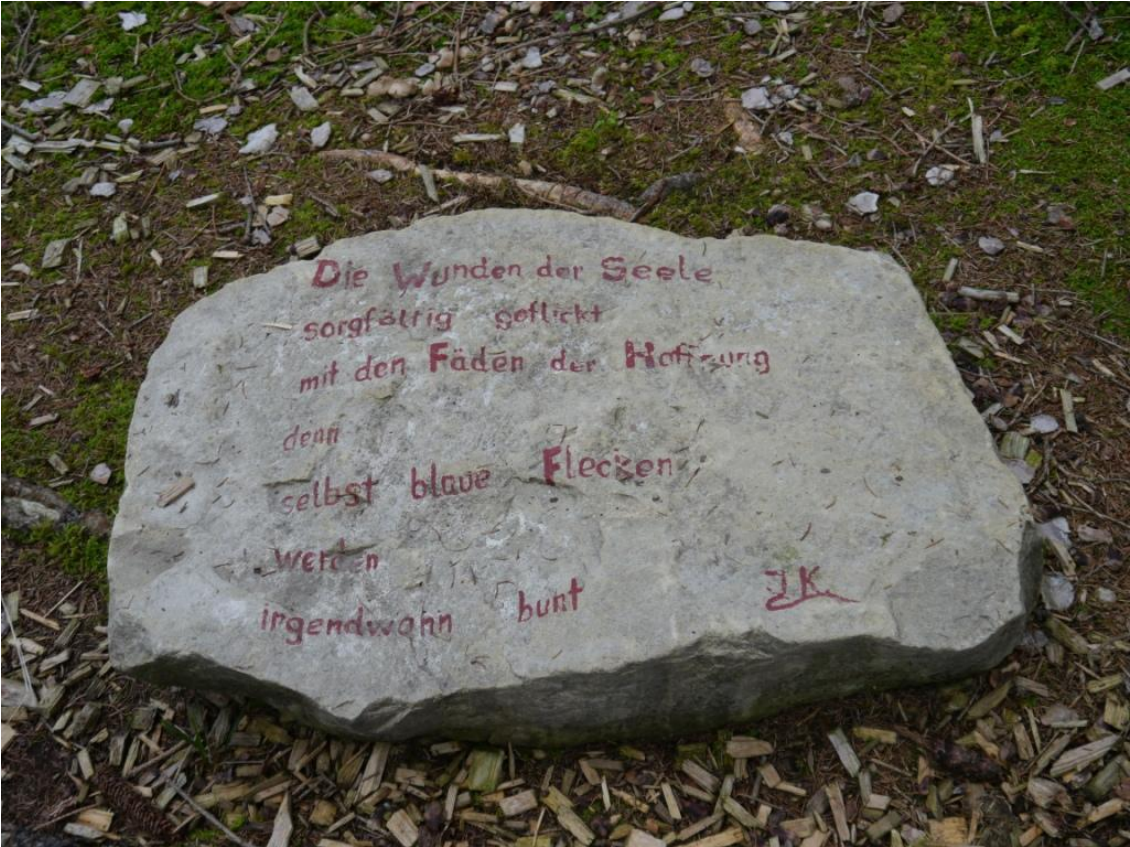 Die Wunden der Seele
sorgfältig geflickt
mit den Fäden der Hoffnung
denn
selbst blaue Flecken
werden
irgendwahn bunt
JK